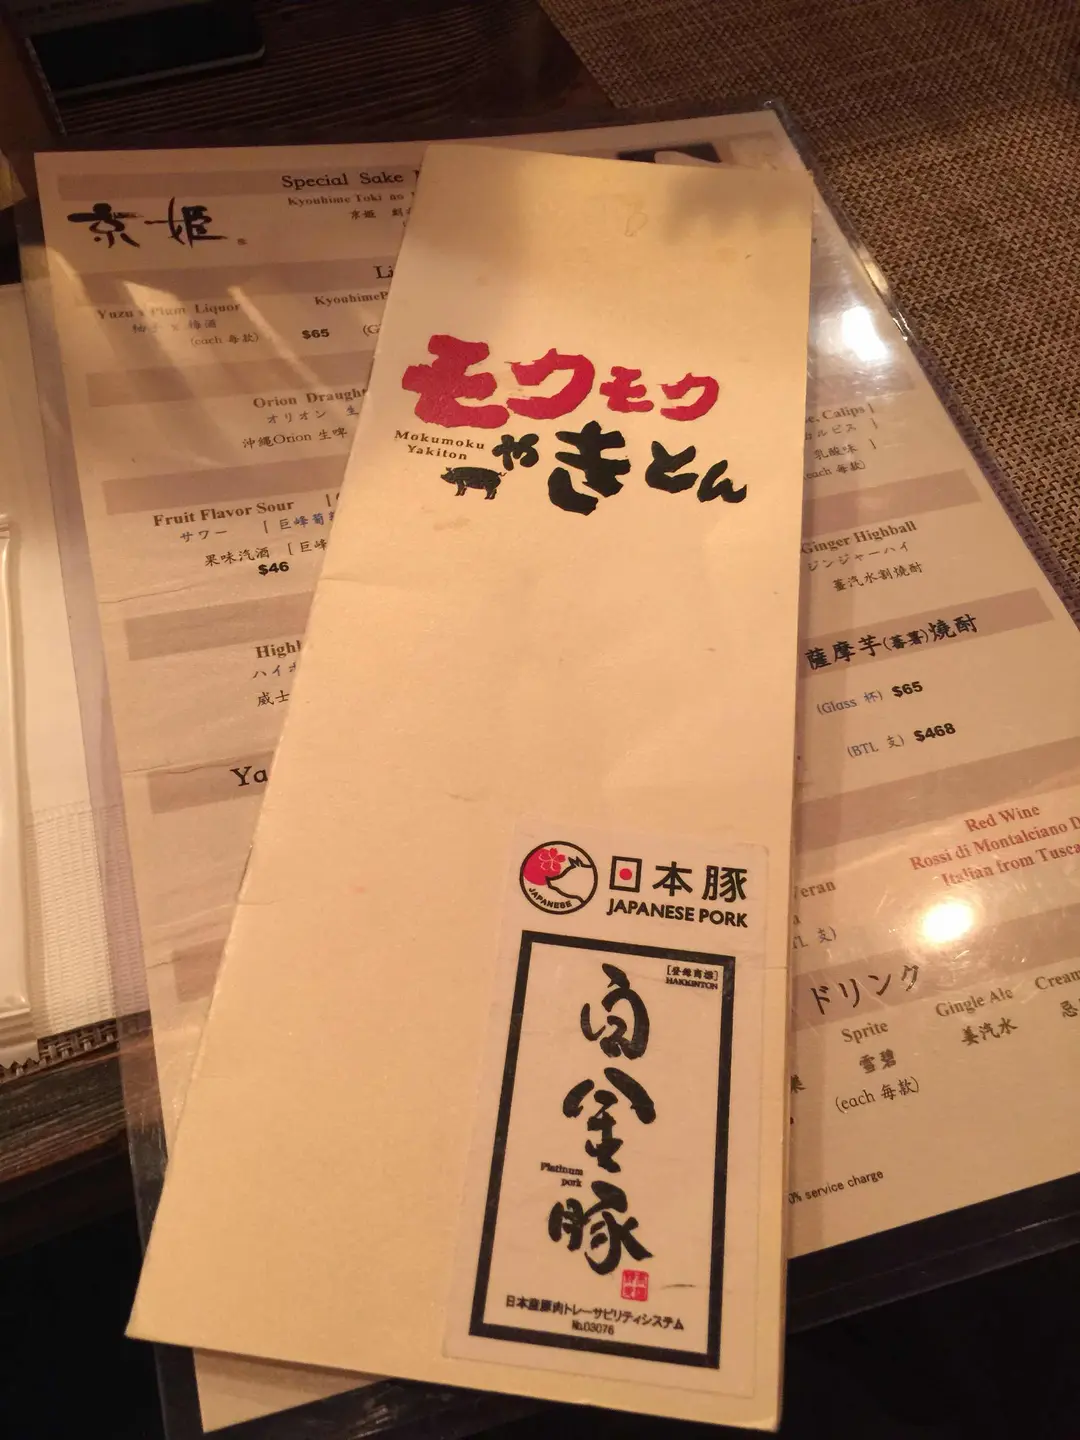 Special Sake
京姫
Kyouhime Toki no
京姫
Yuzu x Plum Liquor
柚子 x 梅酒
(each 每款)
$65
Orion Draught
オリオン 生
沖縄Orion 生啤
Fruit Flavor Sour
サワー [巨峰葡
果味汽酒 [巨峰
$46
High
ハイ
威士
Ya
モクモク
Mokumoku
Yakiton
やきとん
JAPANESE
日本豚
JAPANESE PORK
[登録商標]
HAKKINTON
白金豚
Platinum
pork
日本産豚肉トレーサビリティシステム
No.03076
Calips]
カルピス ]
乳酸味 ]
(each 每款)
Ginger Highball
ジンジャーハイ
薑汽水割燒酎
薩摩芋(蕃薯)燒酎
(Glass 杯) $65
(BTL 支) $468
Red Wine
Rossi di Montalciano D
Italian from Tusca
支)
ドリンク
Sprite
Gingle Ale
Cream
雪碧
姜汽水
忌
(each 每款)
0% service charge